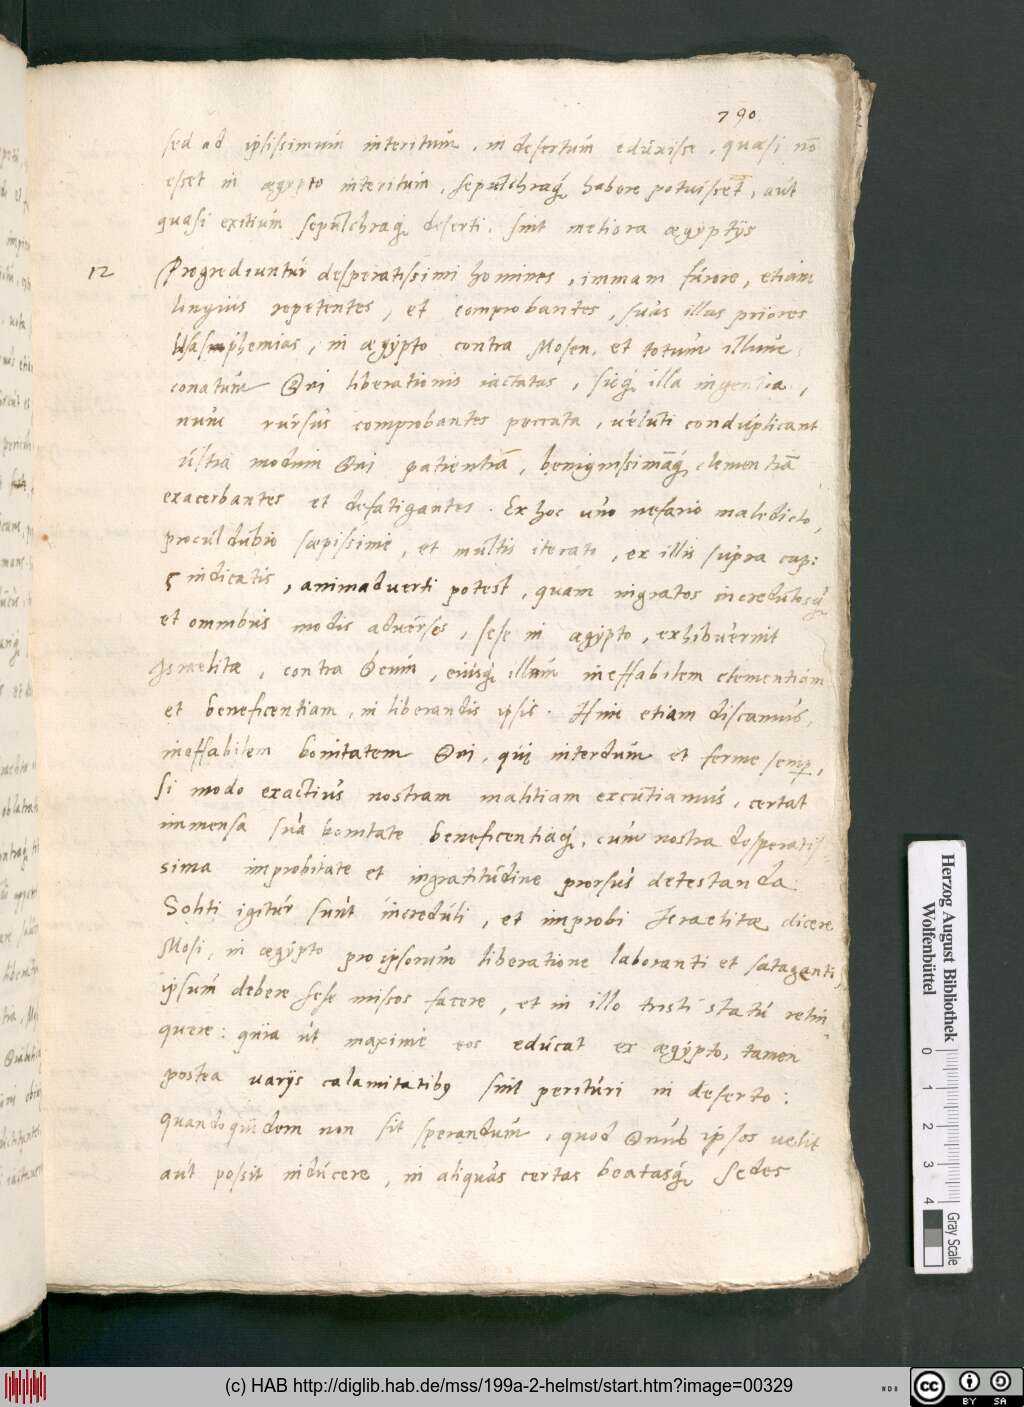 790
sed ad ipsissimum interitum, in desertum eduxisse, quasi nō
esset in ægypto interitum, sepulchraq; habere potuisset, aut
quasi exitium sepulchraq; deserti, sint meliora ægyptijs
12 Progrediuntur desperatissimi homines, immam furore, etiam
longius repetentes, et comprobantes, suas illas priores
blasphemias, in ægypto contra Mosen, et totum illum
conatum Dei liberationis iactatas, sicq; illa ingentia,
num rursus comprobantes peccata, veluti conduplicant
ultra modum Dei patientiā, benignissimāq; clementiā
exacerbantes et defatigantes. Ex hoc uno nefario maledicto,
procul dubio sæpissime, et multis iterato, ex illis supra cap:
5 indicatis, animadverti potest, quam ingratos incredulosq;
et omnibus modis adversos, sese in ægypto, exhibuerint
Israelitæ, contra Deum, eiusq; illam ineffabilem clementiam
et beneficentiam, in liberandis ipsis. Hinc etiam discamus,
ineffabilem bonitatem Dei, qui interdum et ferme semp,
si modo exactius nostram malitiam excutiamus, certat
immensa sua bonitate beneficentiaq; cum nostra desperatis-
sima improbitate et ingratitudine prorsus detestanda.
Soliti igitur sunt increduli, et improbi Israelitæ dicere
Mosi, in ægypto pro ipsorum liberatione laboranti et sataganti,
ipsum debere sese missos facere, et in illo tristi statu relin
quere: quia ut maxime eos educat ex ægypto, tamen
postea varijs calamitatibq sint perituri in deserto:
quandoquidem non sit sperandum, quod Deus ipsos velit
aut possit inducere, in aliquas certas beatasq; sedes
Herzog August Bibliothek
Wolfenbüttel
0 1 2 3 4
Gray Scale
(c) HAB http://diglib.hab.de/mss/199a-2-helmst/start.htm?image=00329
cc BY SA